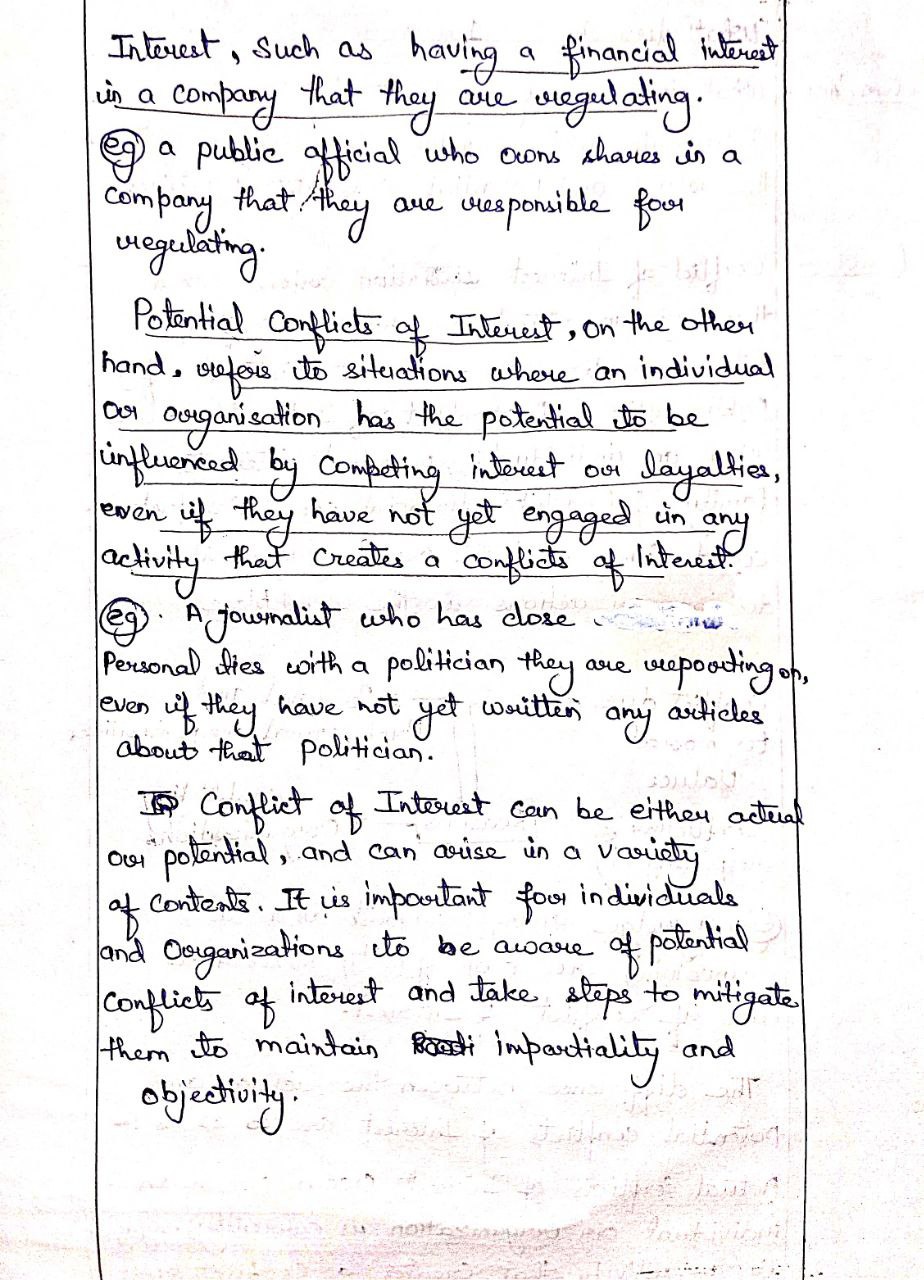 Interest, such as having a financial interest
in a company that they are regulating.
eg a public official who owns shares in a
company that they are responsible for
regulating.
Potential Conflicts of Interest, on the other
hand, refers to situations where an individual
or organisation has the potential to be
influenced by competing interest or layalties,
even if they have not yet engaged in any
activity that creates a conflicts of Interest.
eg. A journalist who has close
Personal ties with a politician they are reporting on,
even if they have not yet written any articles
about that politician.
Conflict of Interest can be either actual
or potential, and can arise in a variety
of contents. It is important for individuals
and Organizations to be aware of potential
conflicts of interest and take steps to mitigate
them to maintain impartiality and
objectivity.